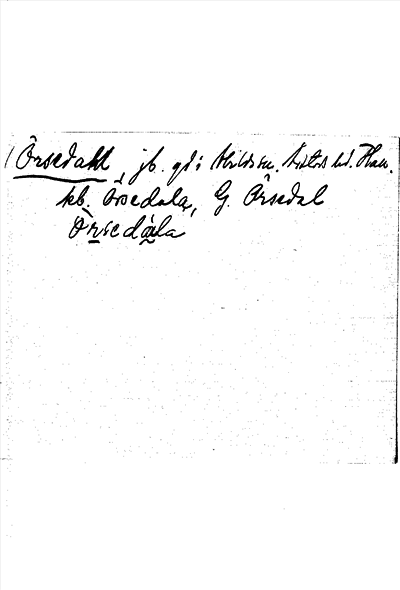 Örsedahl, jb. gd i Abilds sn. Årstads hd. Hall.
kb. Örsedala, G. Örsedal
Örsedàla